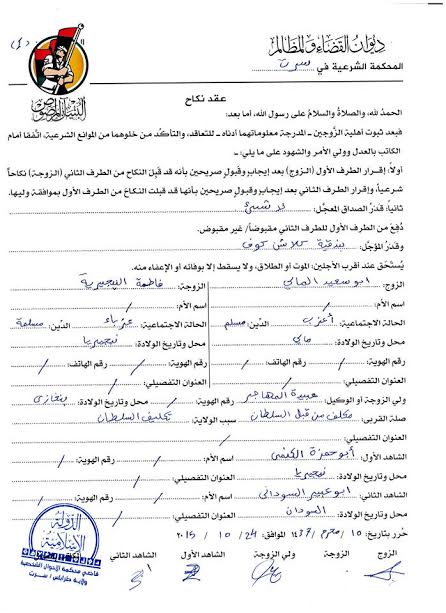 ديوان القضاء والمظالم
المحكمة الشرعية في سرت
البنيان المرصوص
عقد نكاح
الحمدُ لله، والصلاةُ والسلامُ على رسول الله، أما بعد:
فبعد ثبوت أهلية الزَّوجين - المدرجة معلوماتهما أدناه - للتعاقد، والتأكُّد من خلوهما من الموانع الشرعية، اتَّفقا أمام
الكاتب بالعدل وولي الأمر والشهود على ما يلي:
أولاً: إقرار الطرف الأول (الزوج) بعد إيجابٍ وقبولٍ صريحين بأنه قد قَبِلَ النكاح من الطرف الثاني (الزوجة) نكاحاً
شرعياً، وإقرار الطرف الثاني بعد إيجابٍ وقبولٍ صريحين بأنها قد قبلت النكاح من الطرف الأول بموافقة وليها.
ثانياً: قدرُ الصداق المعجَّل: لا شيئ
دُفِعَ من الطرف الأول للطرف الثاني مقبوضاً/ غير مقبوض.
وقدرُ المؤجَّل: بندقية كلاش كوف
يُستَحَق عند أقرب الأجلين: الموت أو الطلاق، ولا يسقط إلا بوفائه أو الإعفاء منه.
الزوج: ابو سعيد المالي الزوجة: فاطمة النيجيرية
اسم الأم: / اسم الأم: /
الحالة الاجتماعية: أعزب الدِّين: مسلم الحالة الاجتماعية: عزباء الدِّين: مسلمة
محل وتاريخ الولادة: مالي محل وتاريخ الولادة: نيجيريا
رقم الهوية: / رقم الهاتف: / رقم الهوية: / رقم الهاتف: /
العنوان التفصيلي: / العنوان التفصيلي: /
ولي الزوجة أو الوكيل: عبيدة المهاجر رقم الهوية: / محل وتاريخ الولادة: بنغازي
صلة القربى: مكلف من قبل السلطان سبب الولاية: تكليف السلطان
العنوان التفصيلي: /
الشاهد الأول: أبو حمزة اسم الأم: / رقم الهوية: /
محل وتاريخ الولادة: نيجيريا العنوان التفصيلي: /
الشاهد الثاني: ابو عمير السوداني اسم الأم: / رقم الهوية: /
محل وتاريخ الولادة: السودان العنوان التفصيلي: /
حُرِّر بتاريخ: ١٠ / محرم / ١٤٣٧ الموافق: 24 / ١٠ / ٢٠١٥
الزوج الزوجة ولي الزوجة الشاهد الأول الشاهد الثاني
الدولة
الإسلامية
قاضي محكمة الاحوال الشخصية
ولاية طرابلس / سرت